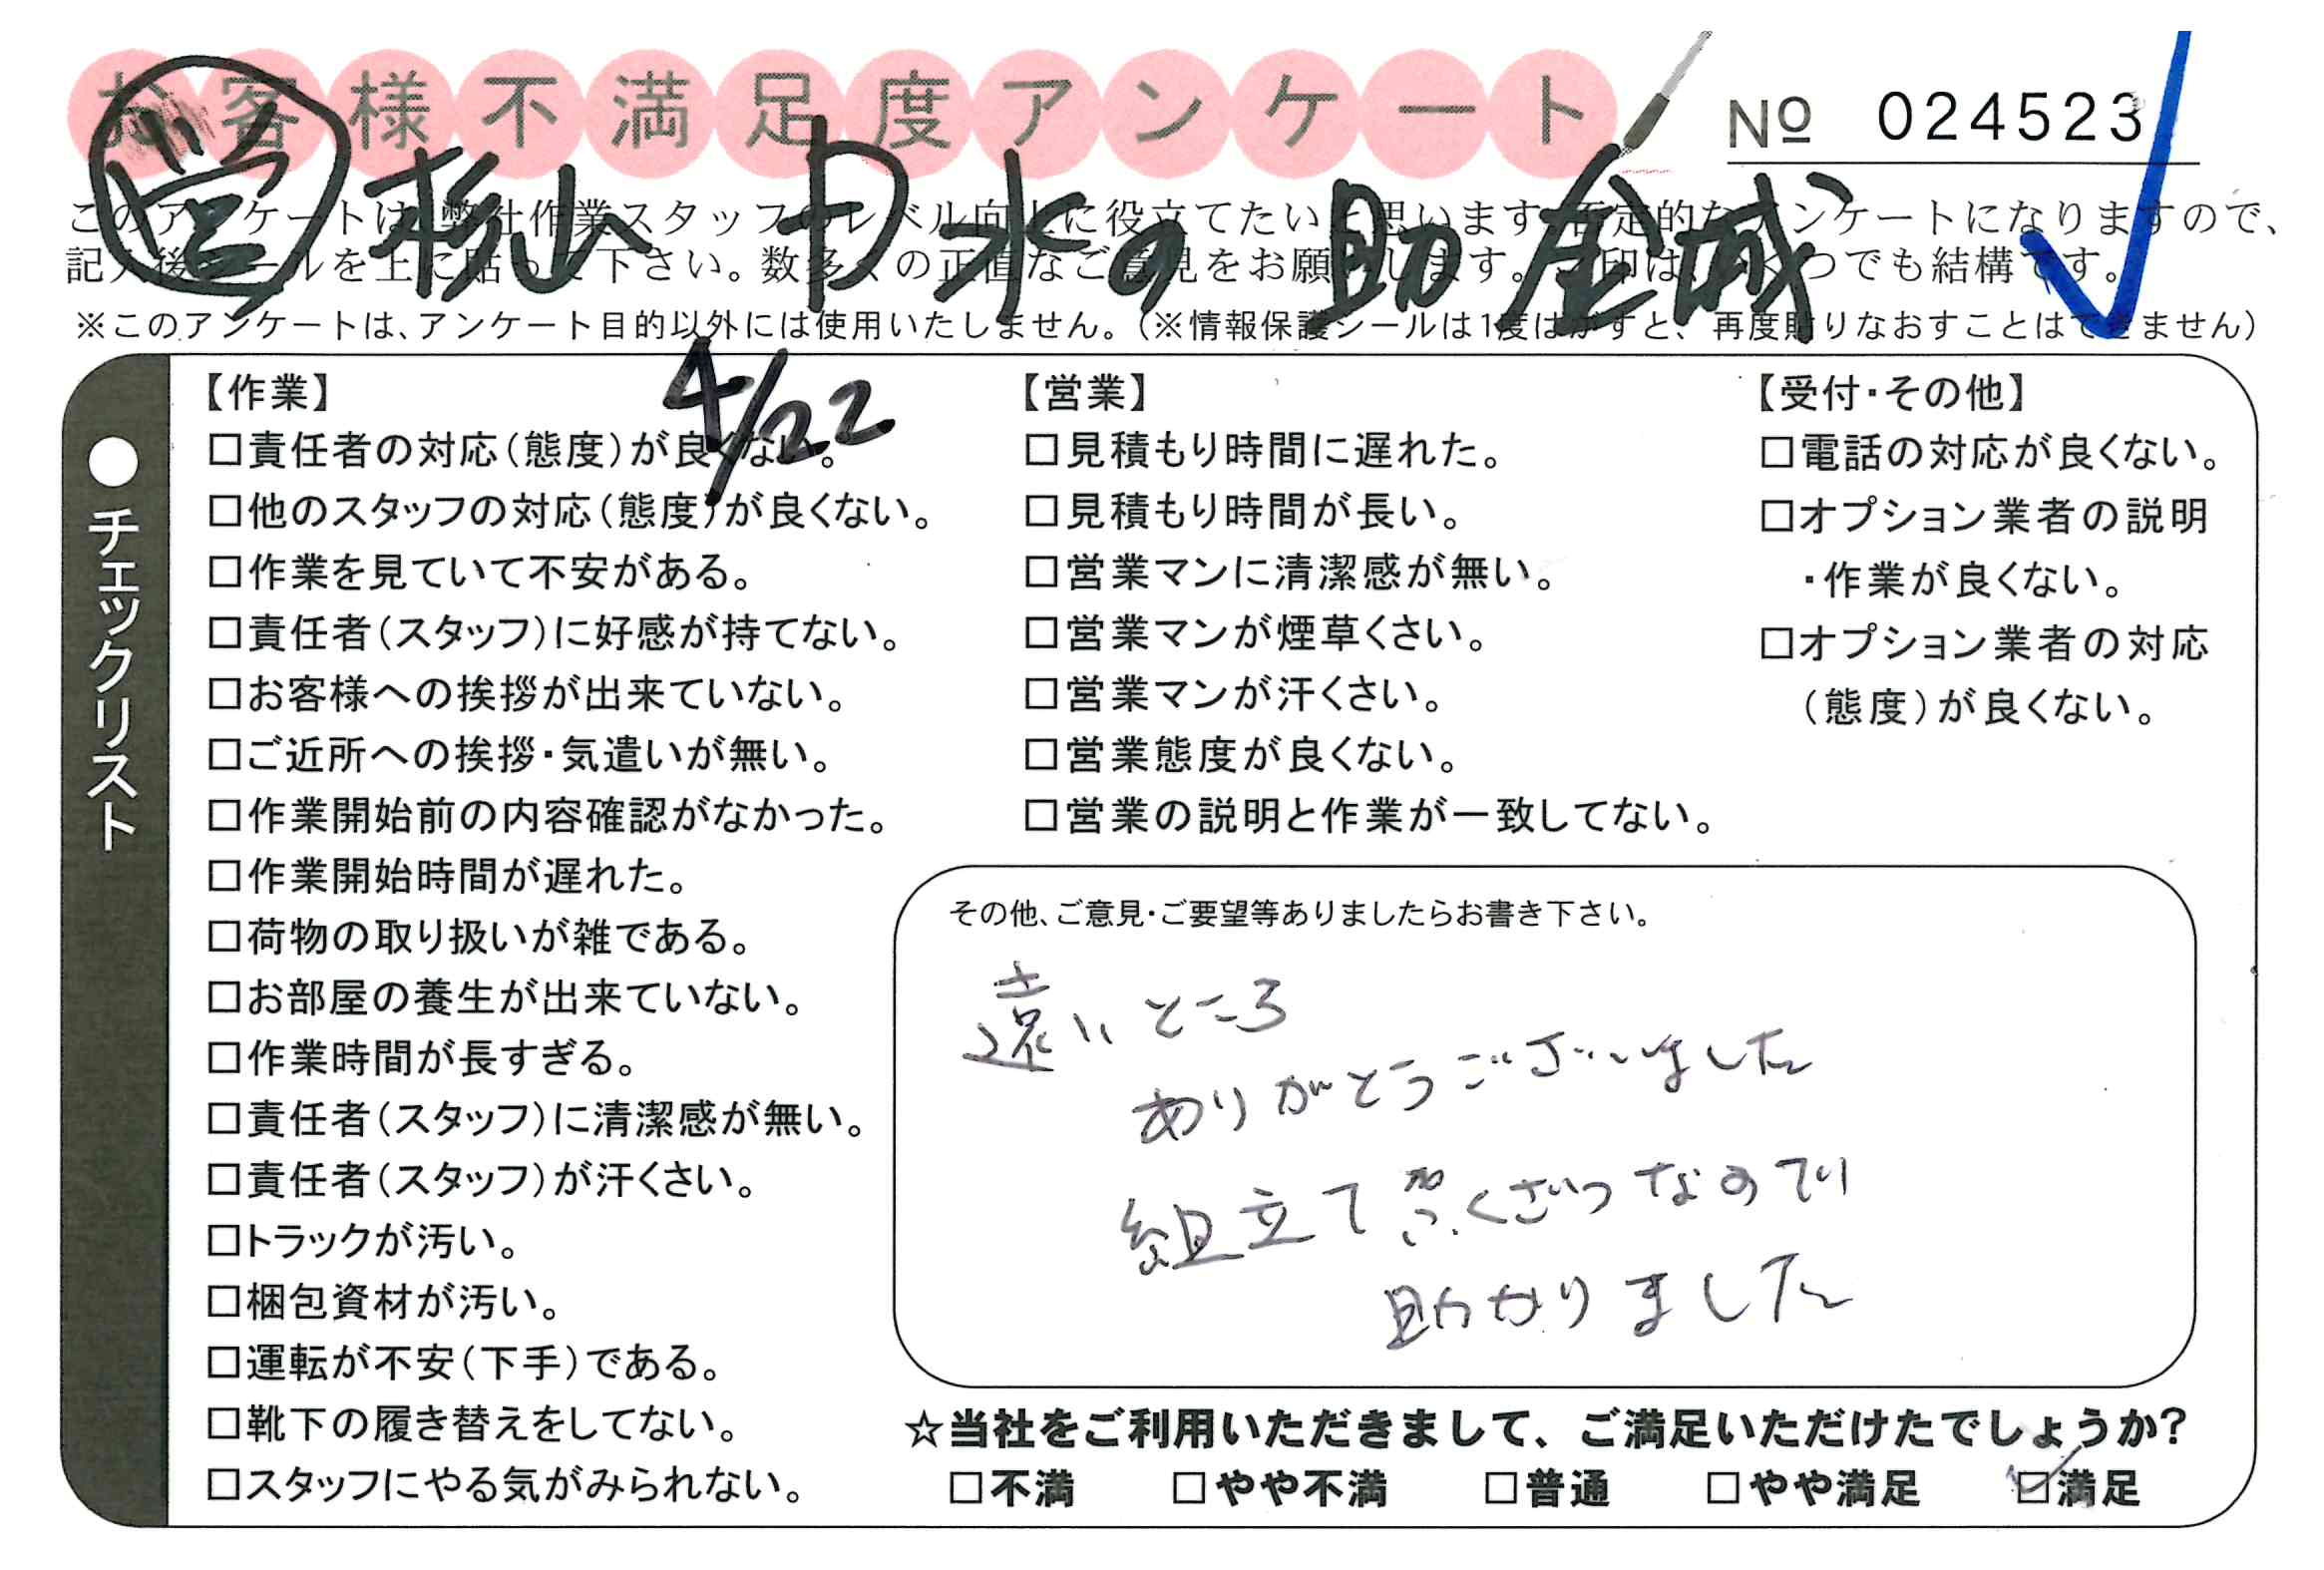 お客様不満足度アンケート
№ 024523
営 杉山 D 水の 助 金城
このアンケートは、弊社作業スタッフのレベル向上に役立てたいと思います。否定的なアンケートになりますので、
記入後シールを上に貼って下さい。数多くの正直なご意見をお願いします。✓印は、いくつでも結構です。
※このアンケートは、アンケート目的以外には使用いたしません。（※情報保護シールは1度はがすと、再度貼りなおすことはできません）
4/22
●チェックリスト
【作業】
□責任者の対応（態度）が良くない。
□他のスタッフの対応（態度）が良くない。
□作業を見ていて不安がある。
□責任者（スタッフ）に好感が持てない。
□お客様への挨拶が出来ていない。
□ご近所への挨拶・気遣いが無い。
□作業開始前の内容確認がなかった。
□作業開始時間が遅れた。
□荷物の取り扱いが雑である。
□お部屋の養生が出来ていない。
□作業時間が長すぎる。
□責任者（スタッフ）に清潔感が無い。
□責任者（スタッフ）が汗くさい。
□トラックが汚い。
□梱包資材が汚い。
□運転が不安（下手）である。
□靴下の履き替えをしてない。
□スタッフにやる気がみられない。
【営業】
□見積もり時間に遅れた。
□見積もり時間が長い。
□営業マンに清潔感が無い。
□営業マンが煙草くさい。
□営業マンが汗くさい。
□営業態度が良くない。
□営業の説明と作業が一致してない。
【受付・その他】
□電話の対応が良くない。
□オプション業者の説明
・作業が良くない。
□オプション業者の対応
（態度）が良くない。
その他、ご意見・ご要望等ありましたらお書き下さい。
遠いところ
ありがとうございました
組立て ふくざつなので
助かりました
☆当社をご利用いただきまして、ご満足いただけたでしょうか？
□不満 □やや不満 □普通 □やや満足 ☑満足